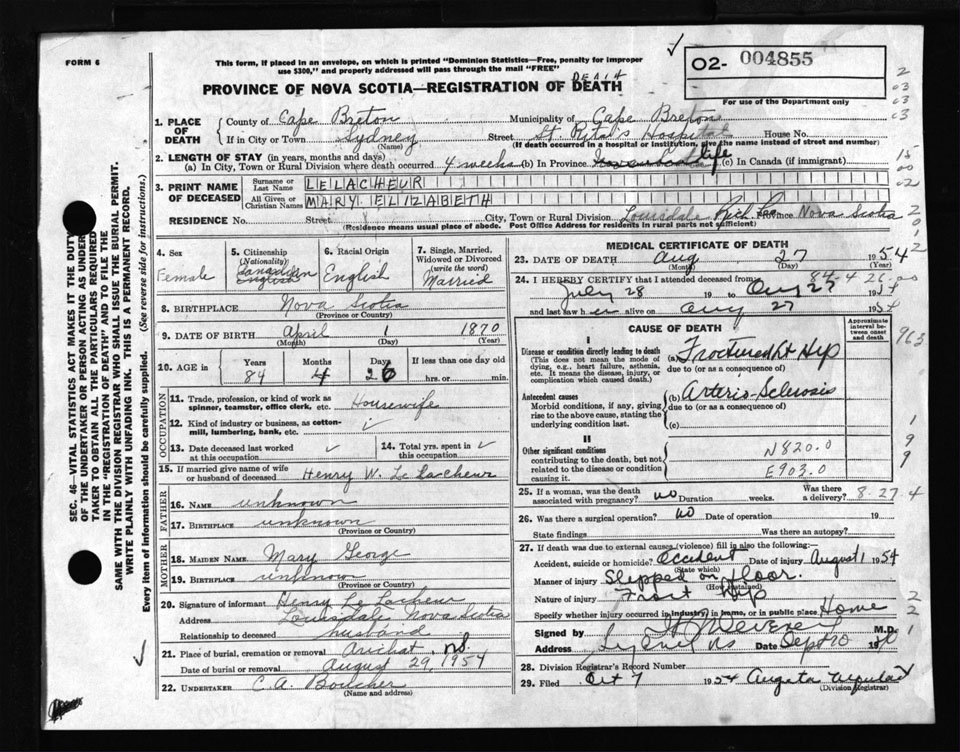 FORM 6
This form, if placed in an envelope, on which is printed "Dominion Statistics—Free, penalty for improper
use $300," and properly addressed will pass through the mail "FREE"
O2- 004855
For use of the Department only
DEATH
PROVINCE OF NOVA SCOTIA—REGISTRATION OF DEATH
1. PLACE OF DEATH
County of Cape Breton Municipality of Cape Breton
If in City or Town Sydney Street St. Rita's Hospital House No.
(Name) (If death occurred in a hospital or institution, give the name instead of street and number)
2. LENGTH OF STAY (in years, months and days)
(a) In City, Town or Rural Division where death occurred 4 weeks (b) In Province life (c) In Canada (if immigrant)
3. PRINT NAME OF DECEASED
Surname or Last Name LELACHEUR
All Given or Christian Names MARY ELIZABETH
RESIDENCE No. Street City, Town or Rural Division Louisdale Rich Co. Province Nova Scotia
(Residence means usual place of abode. Post Office Address for residents in rural parts not sufficient)
4. Sex Female
5. Citizenship (Nationality) Canadian English
6. Racial Origin English
7. Single, Married, Widowed or Divorced (write the word) Married
8. BIRTHPLACE Nova Scotia
(Province or Country)
9. DATE OF BIRTH April 1 1870
(Month) (Day) (Year)
10. AGE in Years Months Days If less than one day old
84 4 26 hrs. or min.
OCCUPATION
11. Trade, profession, or kind of work as spinner, teamster, office clerk, etc. Housewife
12. Kind of industry or business, as cotton-mill, lumbering, bank, etc. ✓
13. Date deceased last worked at ✓ 14. Total yrs. spent in ✓
15. If married give name of wife or husband of deceased Henry W. Le Lacheur
FATHER
16. NAME unknown
17. BIRTHPLACE unknown
(Province or Country)
MOTHER
18. MAIDEN NAME Mary George
19. BIRTHPLACE unknown
(Province or Country)
20. Signature of informant Henry Le Lacheur
Address Louisdale Nova Scotia
Relationship to deceased husband
21. Place of burial, cremation or removal Arichat, N.S.
Date of burial or removal August 29, 1954
22. UNDERTAKER C.A. Boucher
(Name and address)
MEDICAL CERTIFICATE OF DEATH
23. DATE OF DEATH Aug 27 1954
(Month) (Day) (Year)
84. 4 26
24. I HEREBY CERTIFY that I attended deceased from
July 28 19 to Aug 27 1954
and last saw h er alive on Aug 27 1954
CAUSE OF DEATH
Approximate interval between onset and death
I
Disease or condition directly leading to death
(This does not mean the mode of dying, e.g., heart failure, asthenia, etc. It means the disease, injury, or complication which caused death.)
(a) Fractured Lt Hip
due to (or as a consequence of)
Antecedent causes
Morbid conditions, if any, giving rise to the above cause, stating the underlying condition last.
(b) Arterio-Sclerosis
due to (or as a consequence of)
(c)
II
Other significant conditions
contributing to the death, but not related to the disease or condition causing it.
N820.0
E903.0
25. If a woman, was the death associated with pregnancy? no Duration weeks. Was there a delivery? 8-27-4
26. Was there a surgical operation? no Date of operation 19
State findings Was there an autopsy?
27. If death was due to external causes (violence) fill in also the following:—
Accident, suicide or homicide? accident Date of injury August 1 1954
(State which)
Manner of injury Slipped on floor.
(How sustained)
Nature of injury Fract Hip
Specify whether injury occurred in industry, in home, or in public place Home
Signed by M.D.
Address Sydney NS Date Sept 20 19
28. Division Registrar's Record Number
29. Filed Oct 7 1954
(Division Registrar)
SEC. 46—VITAL STATISTICS ACT MAKES IT THE DUTY
OF THE UNDERTAKER OR PERSON ACTING AS UNDER-
TAKER TO OBTAIN ALL THE PARTICULARS REQUIRED
IN THE "REGISTRATION OF DEATH" AND TO FILE THE
SAME WITH THE DIVISION REGISTRAR WHO SHALL ISSUE THE BURIAL PERMIT.
WRITE PLAINLY WITH UNFADING INK. THIS IS A PERMANENT RECORD.
Every item of information should be carefully supplied. (See reverse side for instructions.)
963